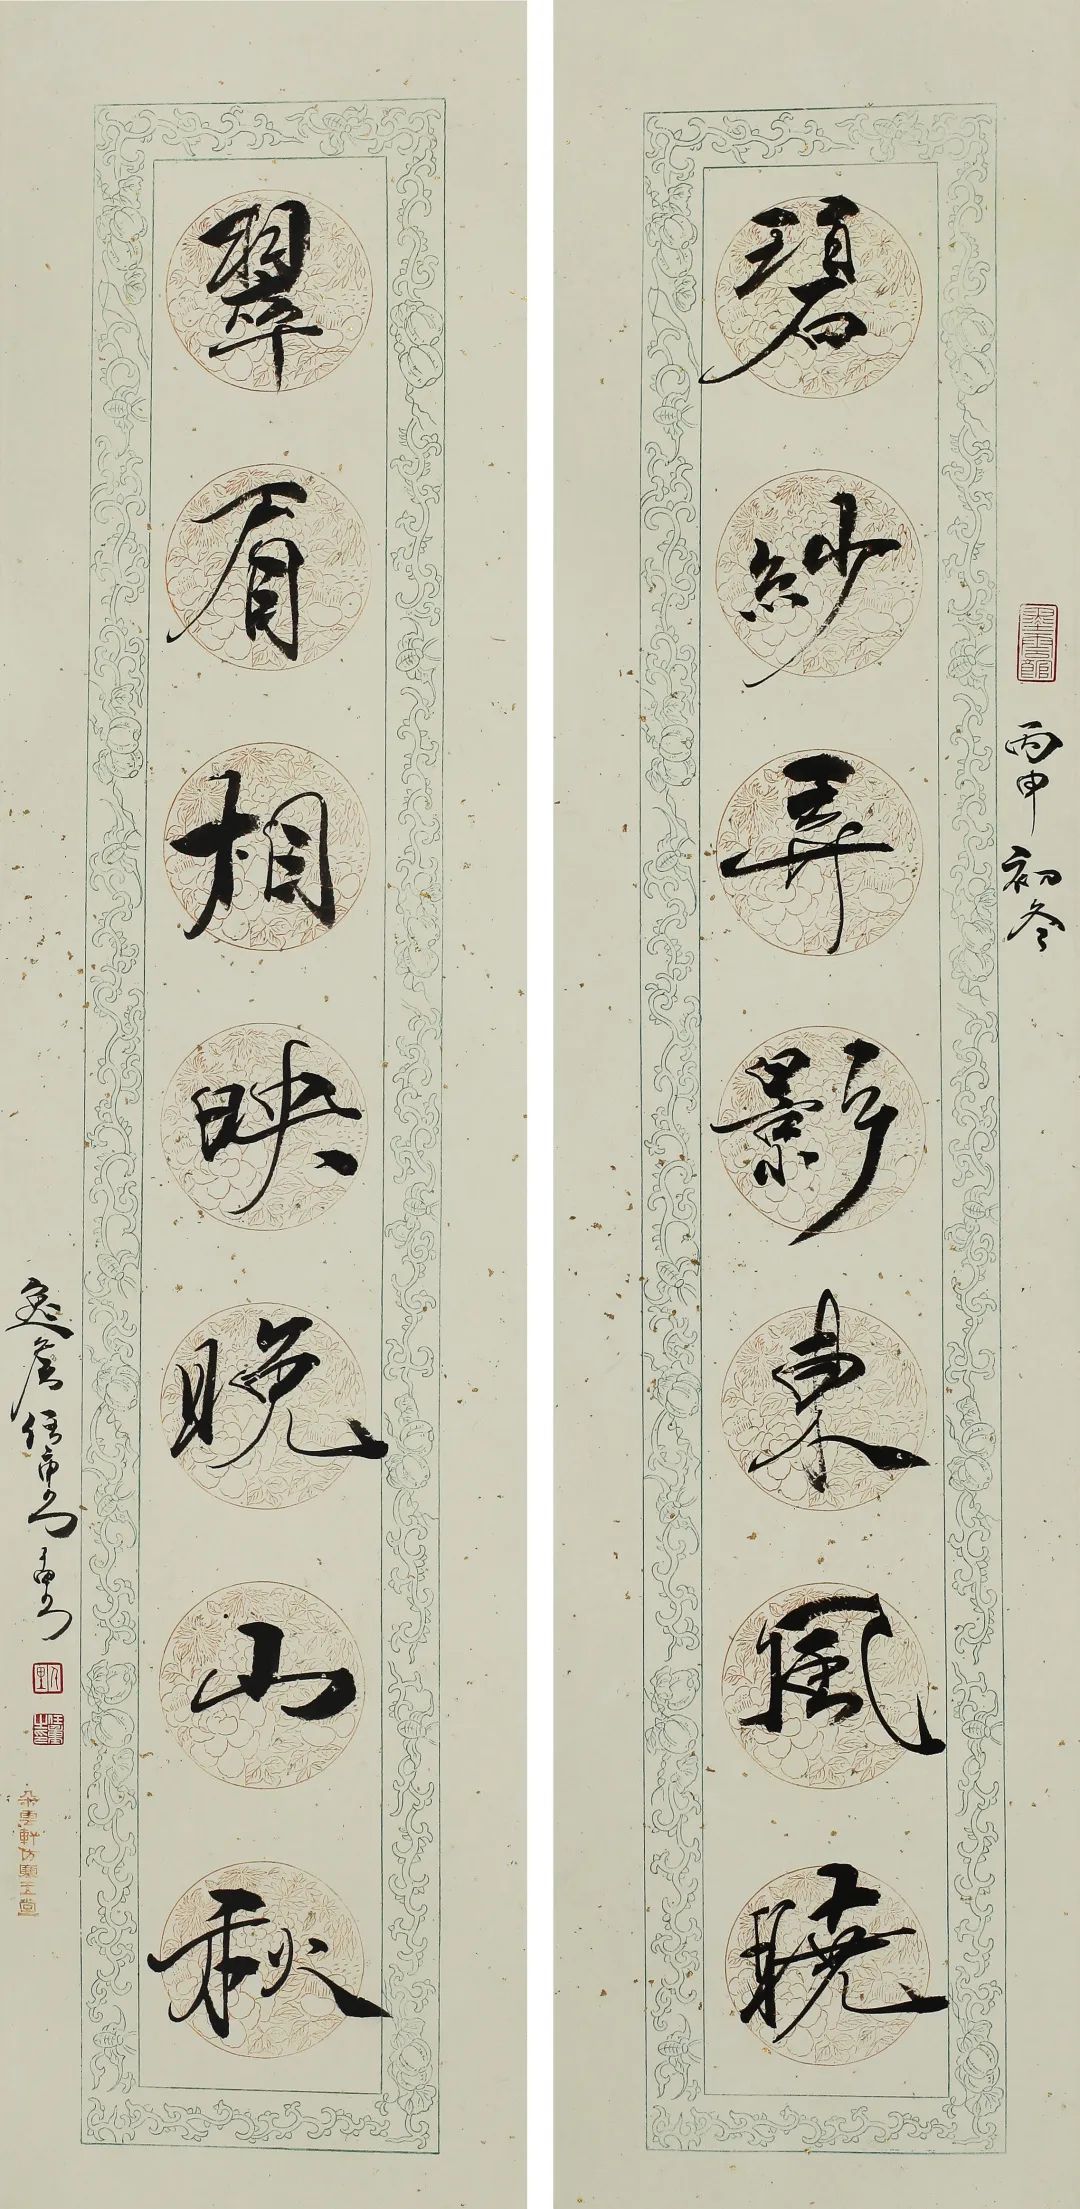 碧紗弄影東風曉
丙申初冬
翠眉相映晚山秋
朵雲軒